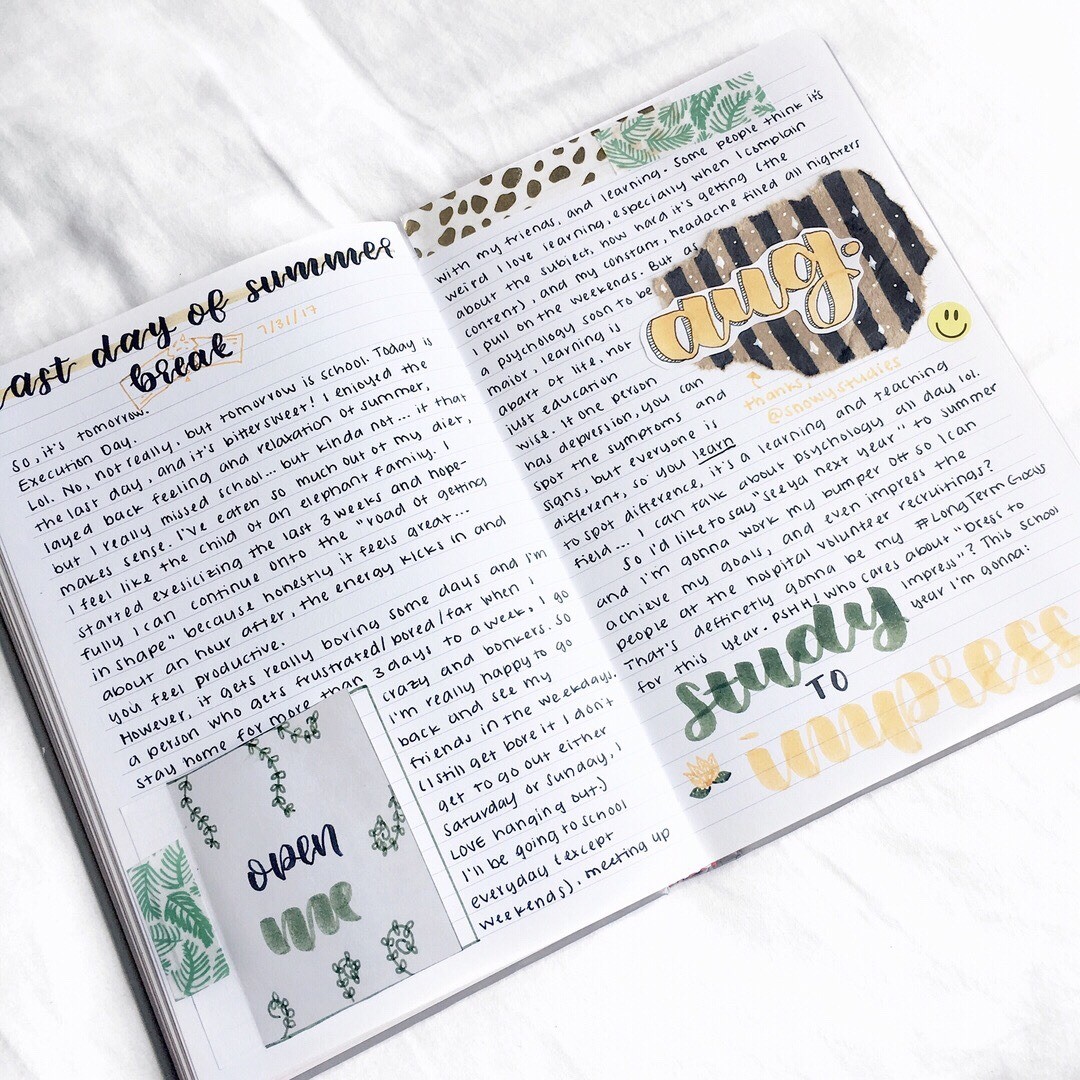 last day of summer
break
7/31/17
So, it's tomorrow.
Execution Day.
Lol. No, not really, but tomorrow is school. Today is
the last day, and it's bittersweet! I enjoyed the
layed back feeling and relaxation of summer,
but I really missed school... but kinda not... if that
makes sense. I've eaten so much out of my diet,
I feel like the child of an elephant family. I
started exesicizing the last 3 weeks and hope-
fully I can continue onto the "road of getting
in shape" because honestly it feels great...
about an hour after, the energy kicks in and
you feel productive.
However, it gets really boring some days and I'm
a person who gets frustrated/bored/fat when I
stay home for more than 3 days to a week, I go
crazy and bonkers. So
I'm really happy to go
back and see my
friends in the weekdays.
(I still get bore if I don't
get to go out either
Saturday or Sunday, I
LOVE hanging out.)
I'll be going to school
everyday (except
weekends), meeting up
open
me
with my friends, and learning. Some people think it's
weird I love learning, especially when I complain
about the subject, how hard it's getting (the
content), and my constant, headache filled all nighters
I pull on the weekends. But as
a psychology soon to be
major, learning is
apart of life, not
just education
wise. If one person
has depression, you can
spot the symptoms and
signs, but everyone is
different, so you learn
to spot difference, it's a learning and teaching
field... I can talk about psychology all day lol.
So I'd like to say "see ya next year" to summer
and I'm gonna work my bumper off so I can
achieve my goals, and even impress the
people at the hospital volunteer recruitings?
That's definetly gonna be my #LongTermGoals
for this year. PSHH! Who cares about "Dress to
Impress"? This school
year I'm gonna:
aug.
thanks,
@snowystudies
study
TO
impress